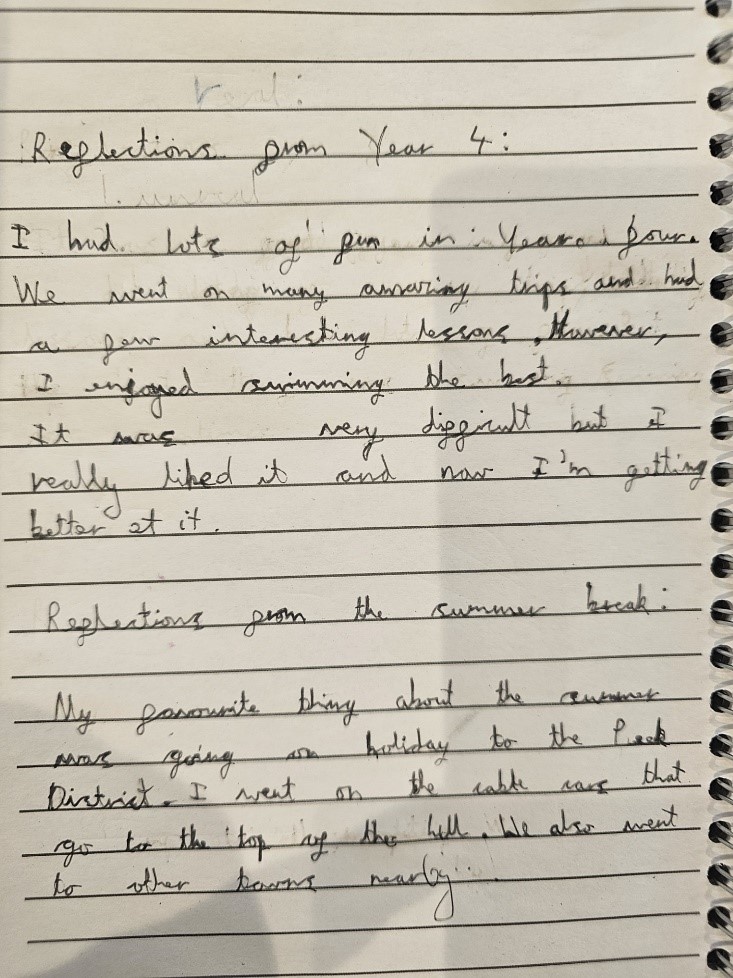 Reflections from Year 4:
I had lots of fun in Year four.
We went on many amazing trips and had
a few interesting lessons. However,
I enjoyed swimming the best.
It was very difficult but I
really liked it and now I'm getting
better at it.
Reflections from the summer break:
My favourite thing about the summer
was going on holiday to the Peak
District. I went on the cable cars that
go to the top of the hill. We also went
to other towns nearby.